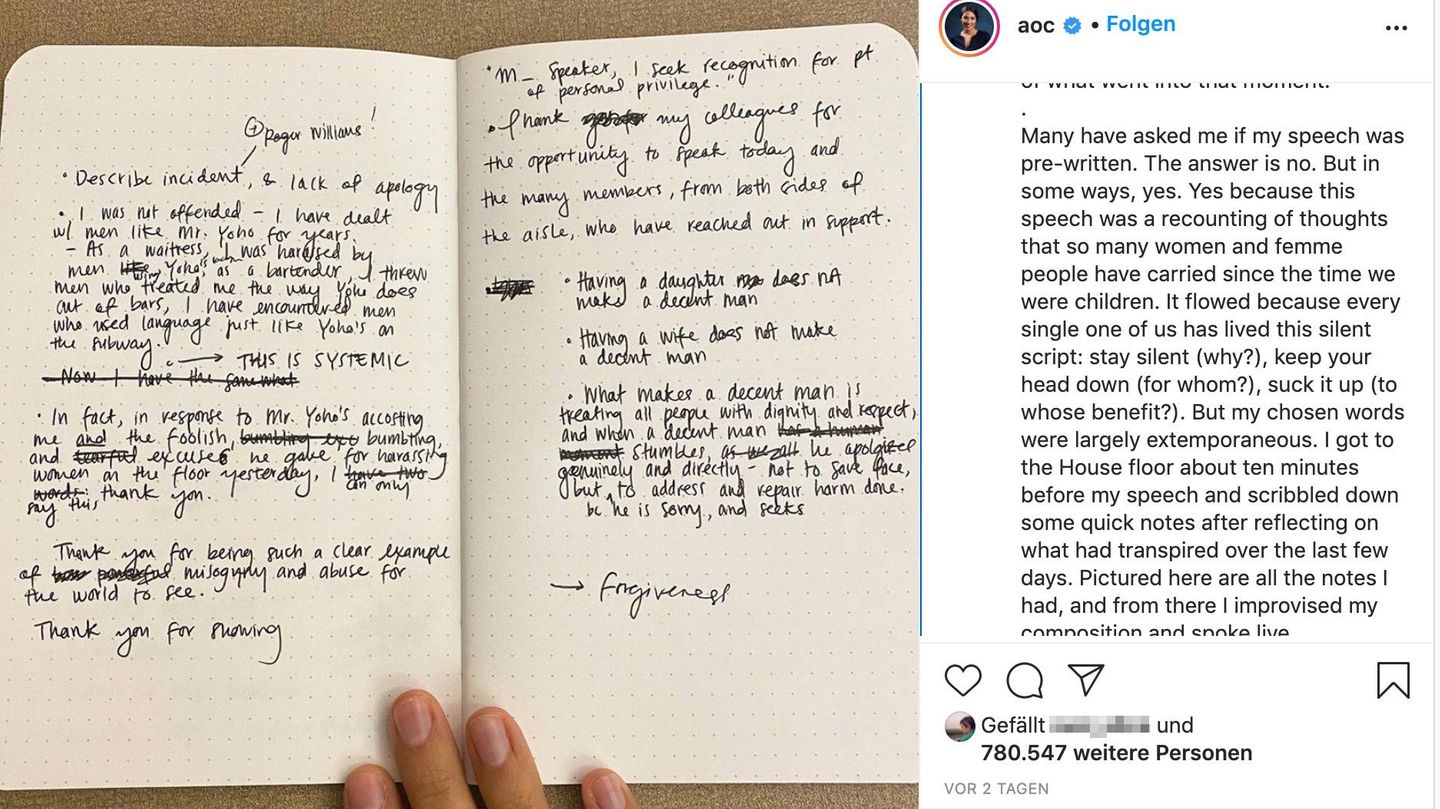 + Roger Williams!
• Describe incident, & lack of apology
• I was not offended – I have dealt
w/ men like Mr. Yoho for years.
– As a waitress, I was harassed by
men using Yoho's words, as a bartender, I threw
men who treated me the way Yoho does
out of bars, I have encountered men
who used language just like Yoho's on
the subway.
→ THIS IS SYSTEMIC
Now I have the somewhat
• In fact, in response to Mr. Yoho's accosting
me and the foolish, bumbling exc bumbling,
and tearful excuses he gave for harassing
women on the floor yesterday, I have two
can only
words:
say this, thank you.
Thank you for being such a clear example
of how powerful misogyny and abuse for
the world to see.
Thank you for showing
• "M_ Speaker, I seek recognition for pt
of personal privilege."
• Thank my colleagues for
the opportunity to speak today and
the many members, from both sides of
the aisle, who have reached out in support.
• Having a daughter does nt
make a decent man
• Having a wife does not make
a decent man
• What makes a decent man is
treating all people with dignity and respect,
and when a decent man has a human
moment stumbles, as we all he apologizes
genuinely and directly – not to save face,
but to address and repair harm done.
bc he is sorry, and seeks
→ forgiveness
aoc • Folgen
of what went into that moment.
.
Many have asked me if my speech was
pre-written. The answer is no. But in
some ways, yes. Yes because this
speech was a recounting of thoughts
that so many women and femme
people have carried since the time we
were children. It flowed because every
single one of us has lived this silent
script: stay silent (why?), keep your
head down (for whom?), suck it up (to
whose benefit?). But my chosen words
were largely extemporaneous. I got to
the House floor about ten minutes
before my speech and scribbled down
some quick notes after reflecting on
what had transpired over the last few
days. Pictured here are all the notes I
had, and from there I improvised my
composition and spoke live
Gefällt und
780.547 weitere Personen
VOR 2 TAGEN